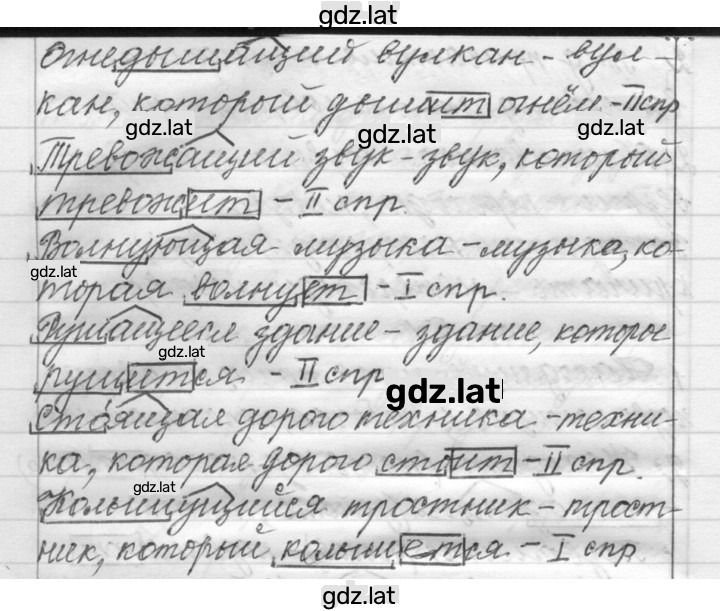 gdz.lat
Огнедышащий вулкан - вул-
кан, который дышит огнём - II спр
gdz.lat gdz.lat gdz.lat
Тревожащий звук - звук, который
тревожит - II спр.
Волнующая музыка - музыка, ко-
gdz.lat
торая волнует - I спр.
Рушащееся здание - здание, которое
gdz.lat
рушится - II спр
gdz.lat
Стоящая дорого техника - техни-
ка, которая дорого стоит - II спр.
gdz.lat
Колышущийся тростник - трост-
ник, который колышется - I спр
gdz.lat